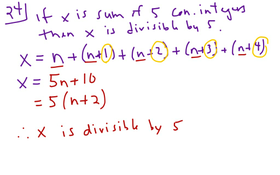 24) If x is sum of 5 con. integers
then x is divisible by 5.
x = n + (n+1) + (n+2) + (n+3) + (n+4)
x = 5n + 10
= 5 (n+2)
∴ x is divisible by 5